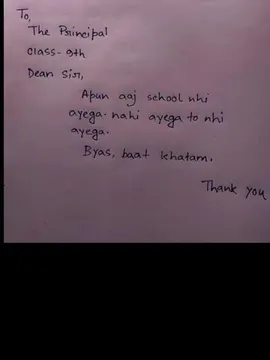 To,
The Principal
class- 9th
Dear Sir,
Apun aaj school nhi
ayega. nahi ayega to nhi
ayega.
Byas, baat khatam.
Thank you